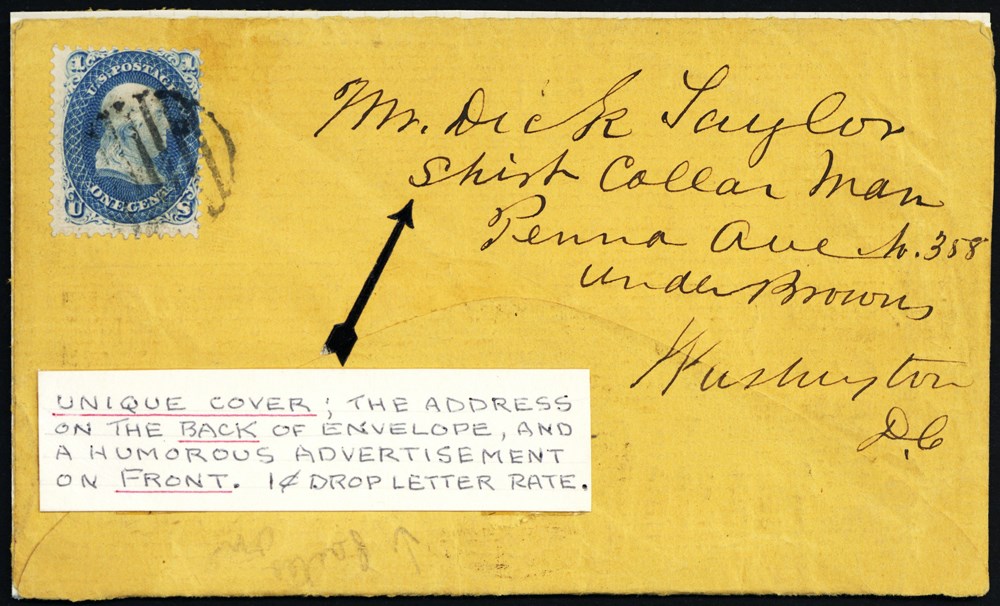 U.S. POSTAGE
ONE CENT
Mr. Dick Taylor
Shirt Collar Man
Penna Ave No. 358
Under Browns
Washington
D.C
UNIQUE COVER; THE ADDRESS
ON THE BACK OF ENVELOPE, AND
A HUMOROUS ADVERTISEMENT
ON FRONT. 1¢ DROP LETTER RATE.